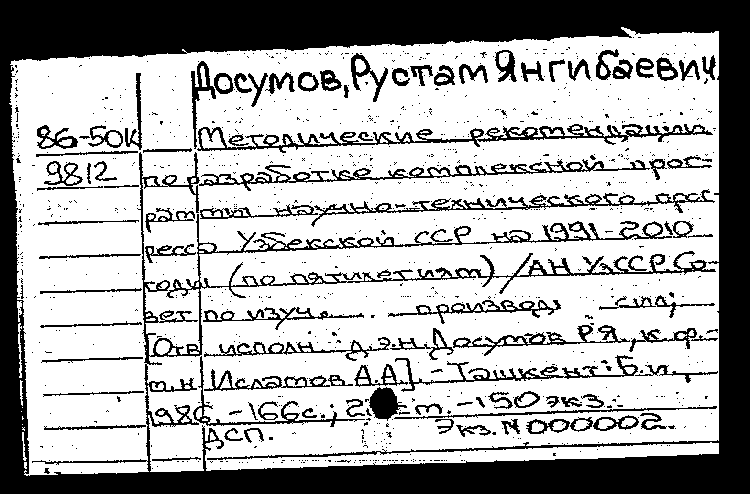 Досумов, Рустам Янгибаевич
86-50К Методические рекомендации
9812 по разработке комплексной прог-
раммы научно-технического прог-
ресса Узбекской ССР на 1991-2010
годы (по пятилетиям) / АН УзССР. Со-
вет по изуч. производ. сил;
[Отв исполн.: д.э.н. Досумов Р.Я., к.ф.-
м.н Исламов А.А]. - Ташкент: Б.и.,
1986. - 166с.; см. - 150 экз.
ДСП. Экз. N 000002.